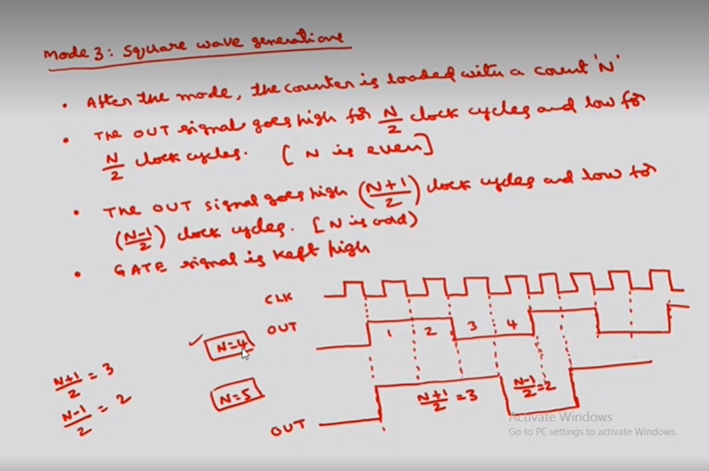 Mode 3: Square wave generations
• After the mode, the counter is loaded with a count 'N'
• The OUT signal goes high for N/2 clock cycles and low for
N/2 clock cycles. [N is even]
• The OUT signal goes high (N+1/2) clock cycles and low for
(N-1/2) clock cycles. [N is odd)
• GATE signal is kept high
CLK
OUT
1 2 3 4
N=4
N+1/2 = 3
N-1/2 = 2
N=5
N+1/2 = 3
N-1/2 = 2
OUT
Activate Windows
Go to PC settings to activate Windows.